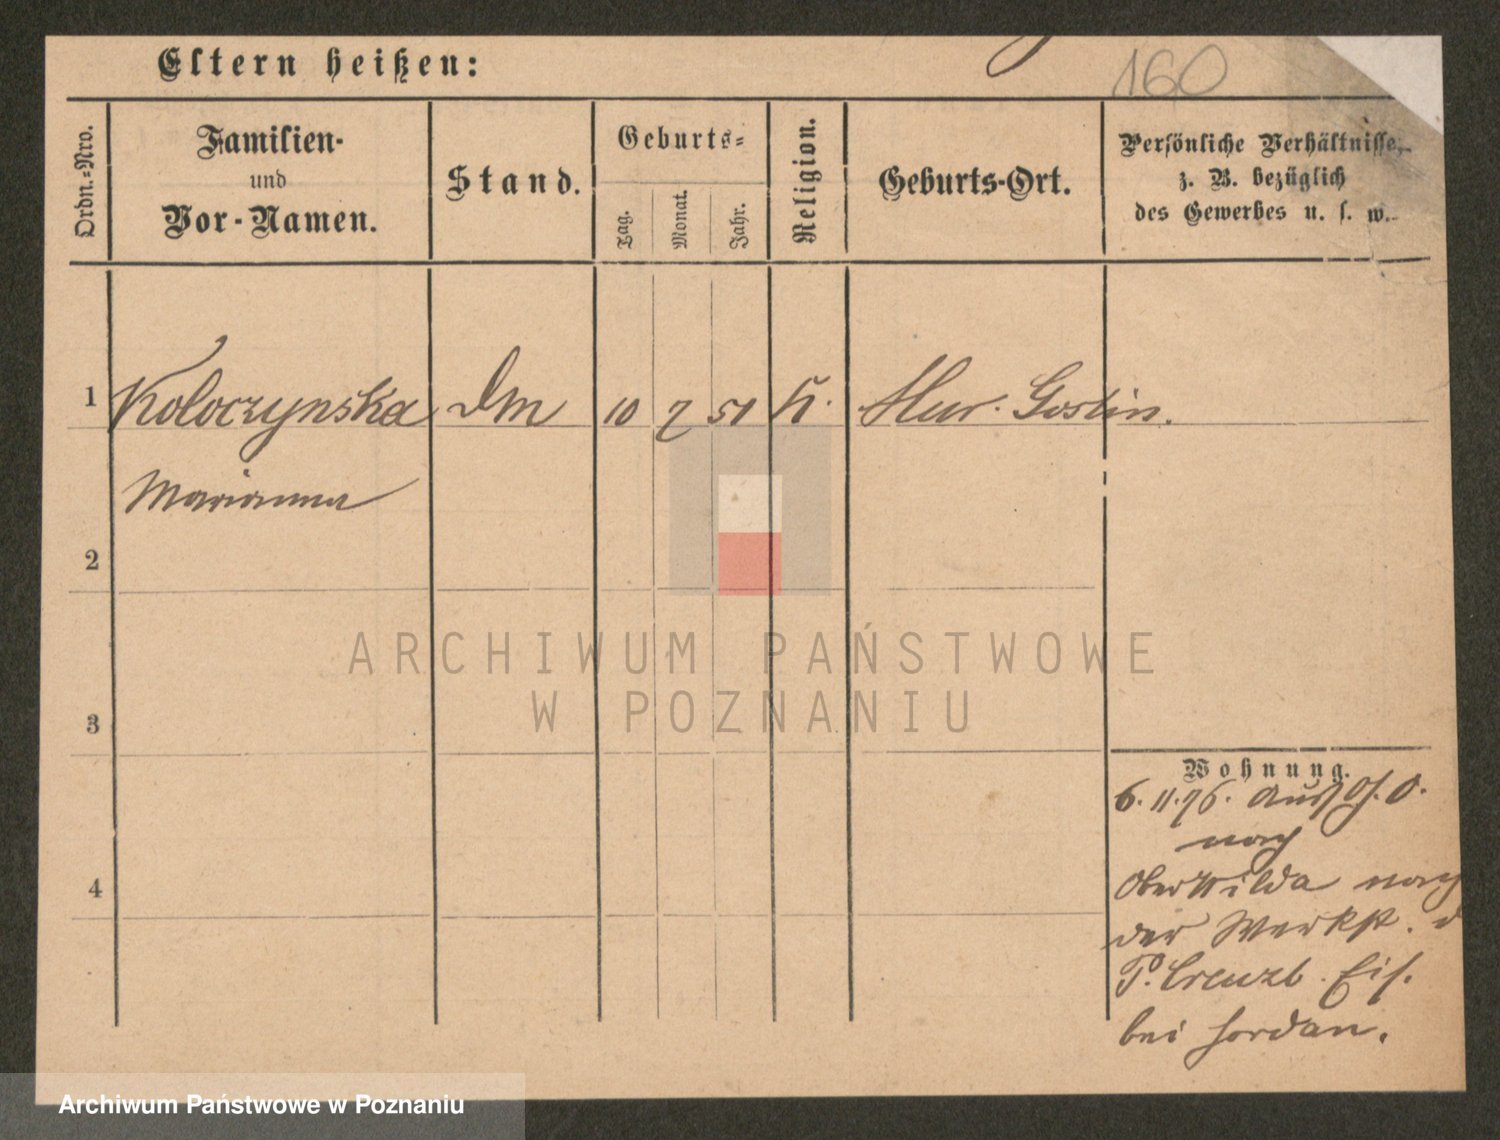 160
Eltern heißen:
Ordn.-Nro.
Familien-
und
Vor-Namen.
Stand.
Geburts-
Tag.
Monat.
Jahr.
Religion.
Geburts-Ort.
Persönliche Verhältnisse,
z. B. bezüglich
des Gewerbes u. s. w.
1
Koloczynska
Dm
10
7
51
K.
Mur. Goslin.
Marianna
2
3
4
Wohnung.
6.11.76.
nach
Ober Wilda nach
der Werkst. d
P. Creuzb. Eis.
bei Jordan.
ARCHIWUM PAŃSTWOWE
W POZNANIU
Archiwum Państwowe w Poznaniu